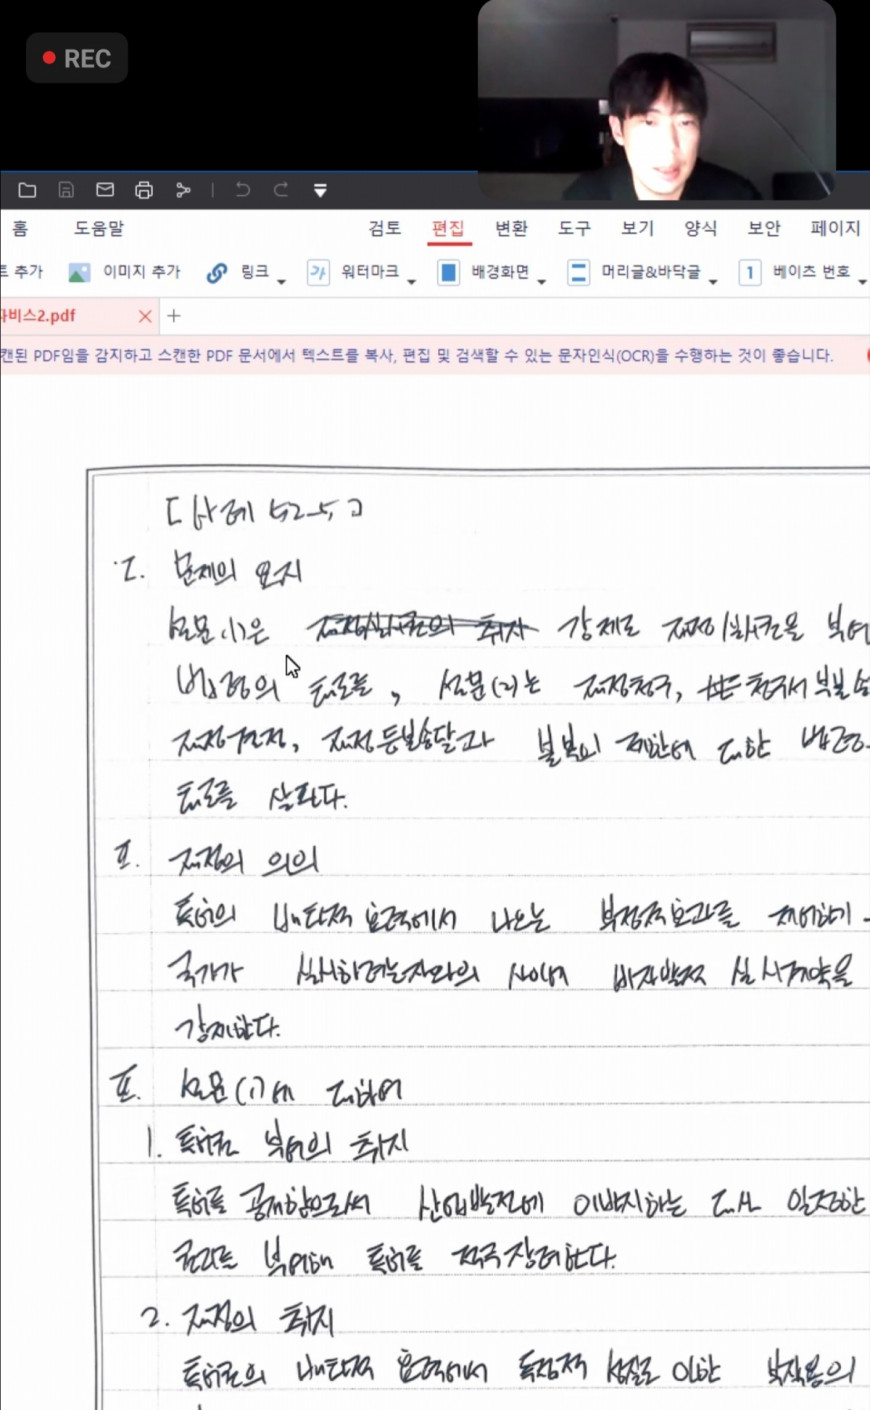 REC
홈 도움말 검토 편집 변환 도구 보기 양식 보안 페이지
트 추가 이미지 추가 링크 워터마크 배경화면 머리글&바닥글 베이츠 번호
자비스2.pdf
캔된 PDF임을 감지하고 스캔한 PDF 문서에서 텍스트를 복사, 편집 및 검색할 수 있는 문자인식(OCR)을 수행하는 것이 좋습니다.
[사례 52-5]
I. 문제의 요지
설문(1)은 강제로 재정실시권을
법령의 태도를, 설문(2)는 재정청구, 청구서 부본송
재정결정, 재정등본송달과 불복의 제한에 대한 법령
태도를 살핀다.
II. 재정의 의의
특허의 배타적 효력에서 나오는 부정적효과를 제어하기
국가가 실시하려는자와의 사이에 비자발적 실시계약을
강제한다.
III. 설문(1)에 대하여
1. 특허권 부여의 취지
특허를 공개함으로써 산업발전에 이바지하는 대사 일정한
권리를 부여해 특허를 적극장려한다.
2. 재정의 취지
특허권의 배타적 효력에서 독점적 성질로 인한 부작용의